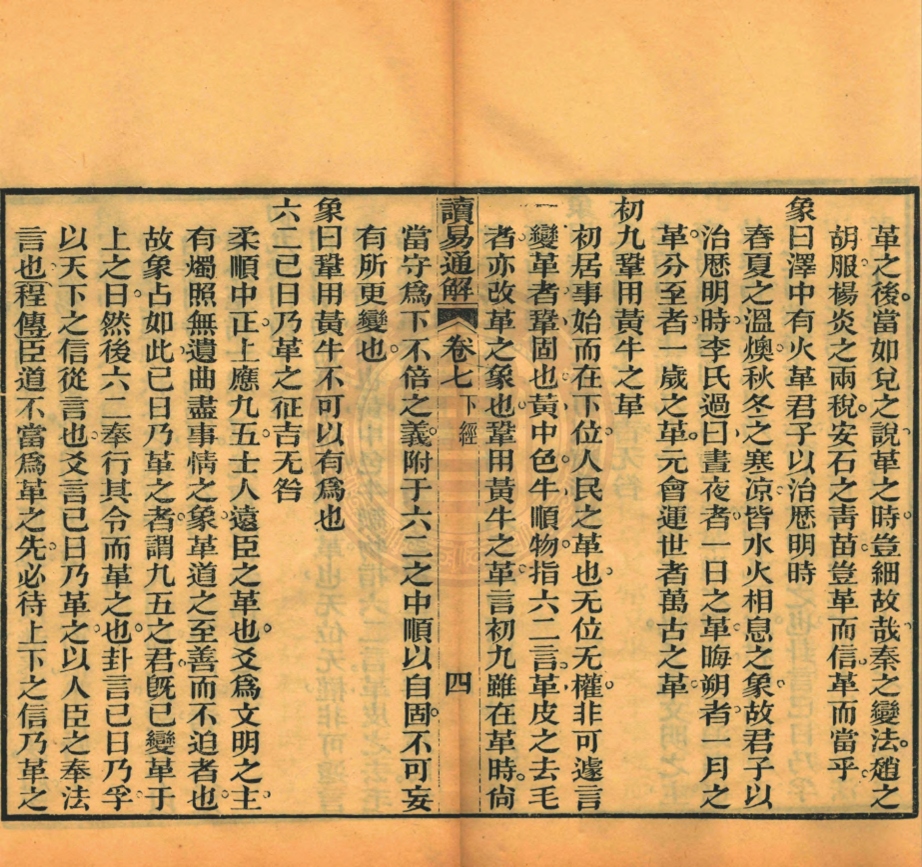 革之後當如兒之說革之時豈細故哉秦之變法趙之
胡服楊炎之兩稅安石之靑苗豈革而信革而當乎
象曰澤中有火革君子以治厯明時
春夏之溫燠秋冬之寒凉皆水火相息之象故君子以
治厯明時李氏過曰晝夜者一日之革晦朔者一月之
革分至者一歲之革元會運世者萬古之革
初九鞏用黃牛之革
初居事始而在下位人民之革也无位无權非可遽言
變革者鞏固也黃中色牛順物指六二言革皮之去毛
者亦改革之象也鞏用黃牛之革言初九雖在革時尙
讀易通解 卷七 下經 四
當守爲下不倍之義附于六二之中順以自固不可妄
有所更變也
象曰鞏用黃牛不可以有爲也
六二己日乃革之征吉无咎
柔順中正上應九五士人遠臣之革也爻爲文明之主
有燭照無遺曲盡事情之象革道之至善而不迫者也
故象占如此己日乃革之者謂九五之君旣已變革于
上之日然後六二奉行其令而革之也卦言己日乃孚
以天下之信從言也爻言己日乃革之以人臣之奉法
言也程傳臣道不當爲革之先必待上下之信乃革之